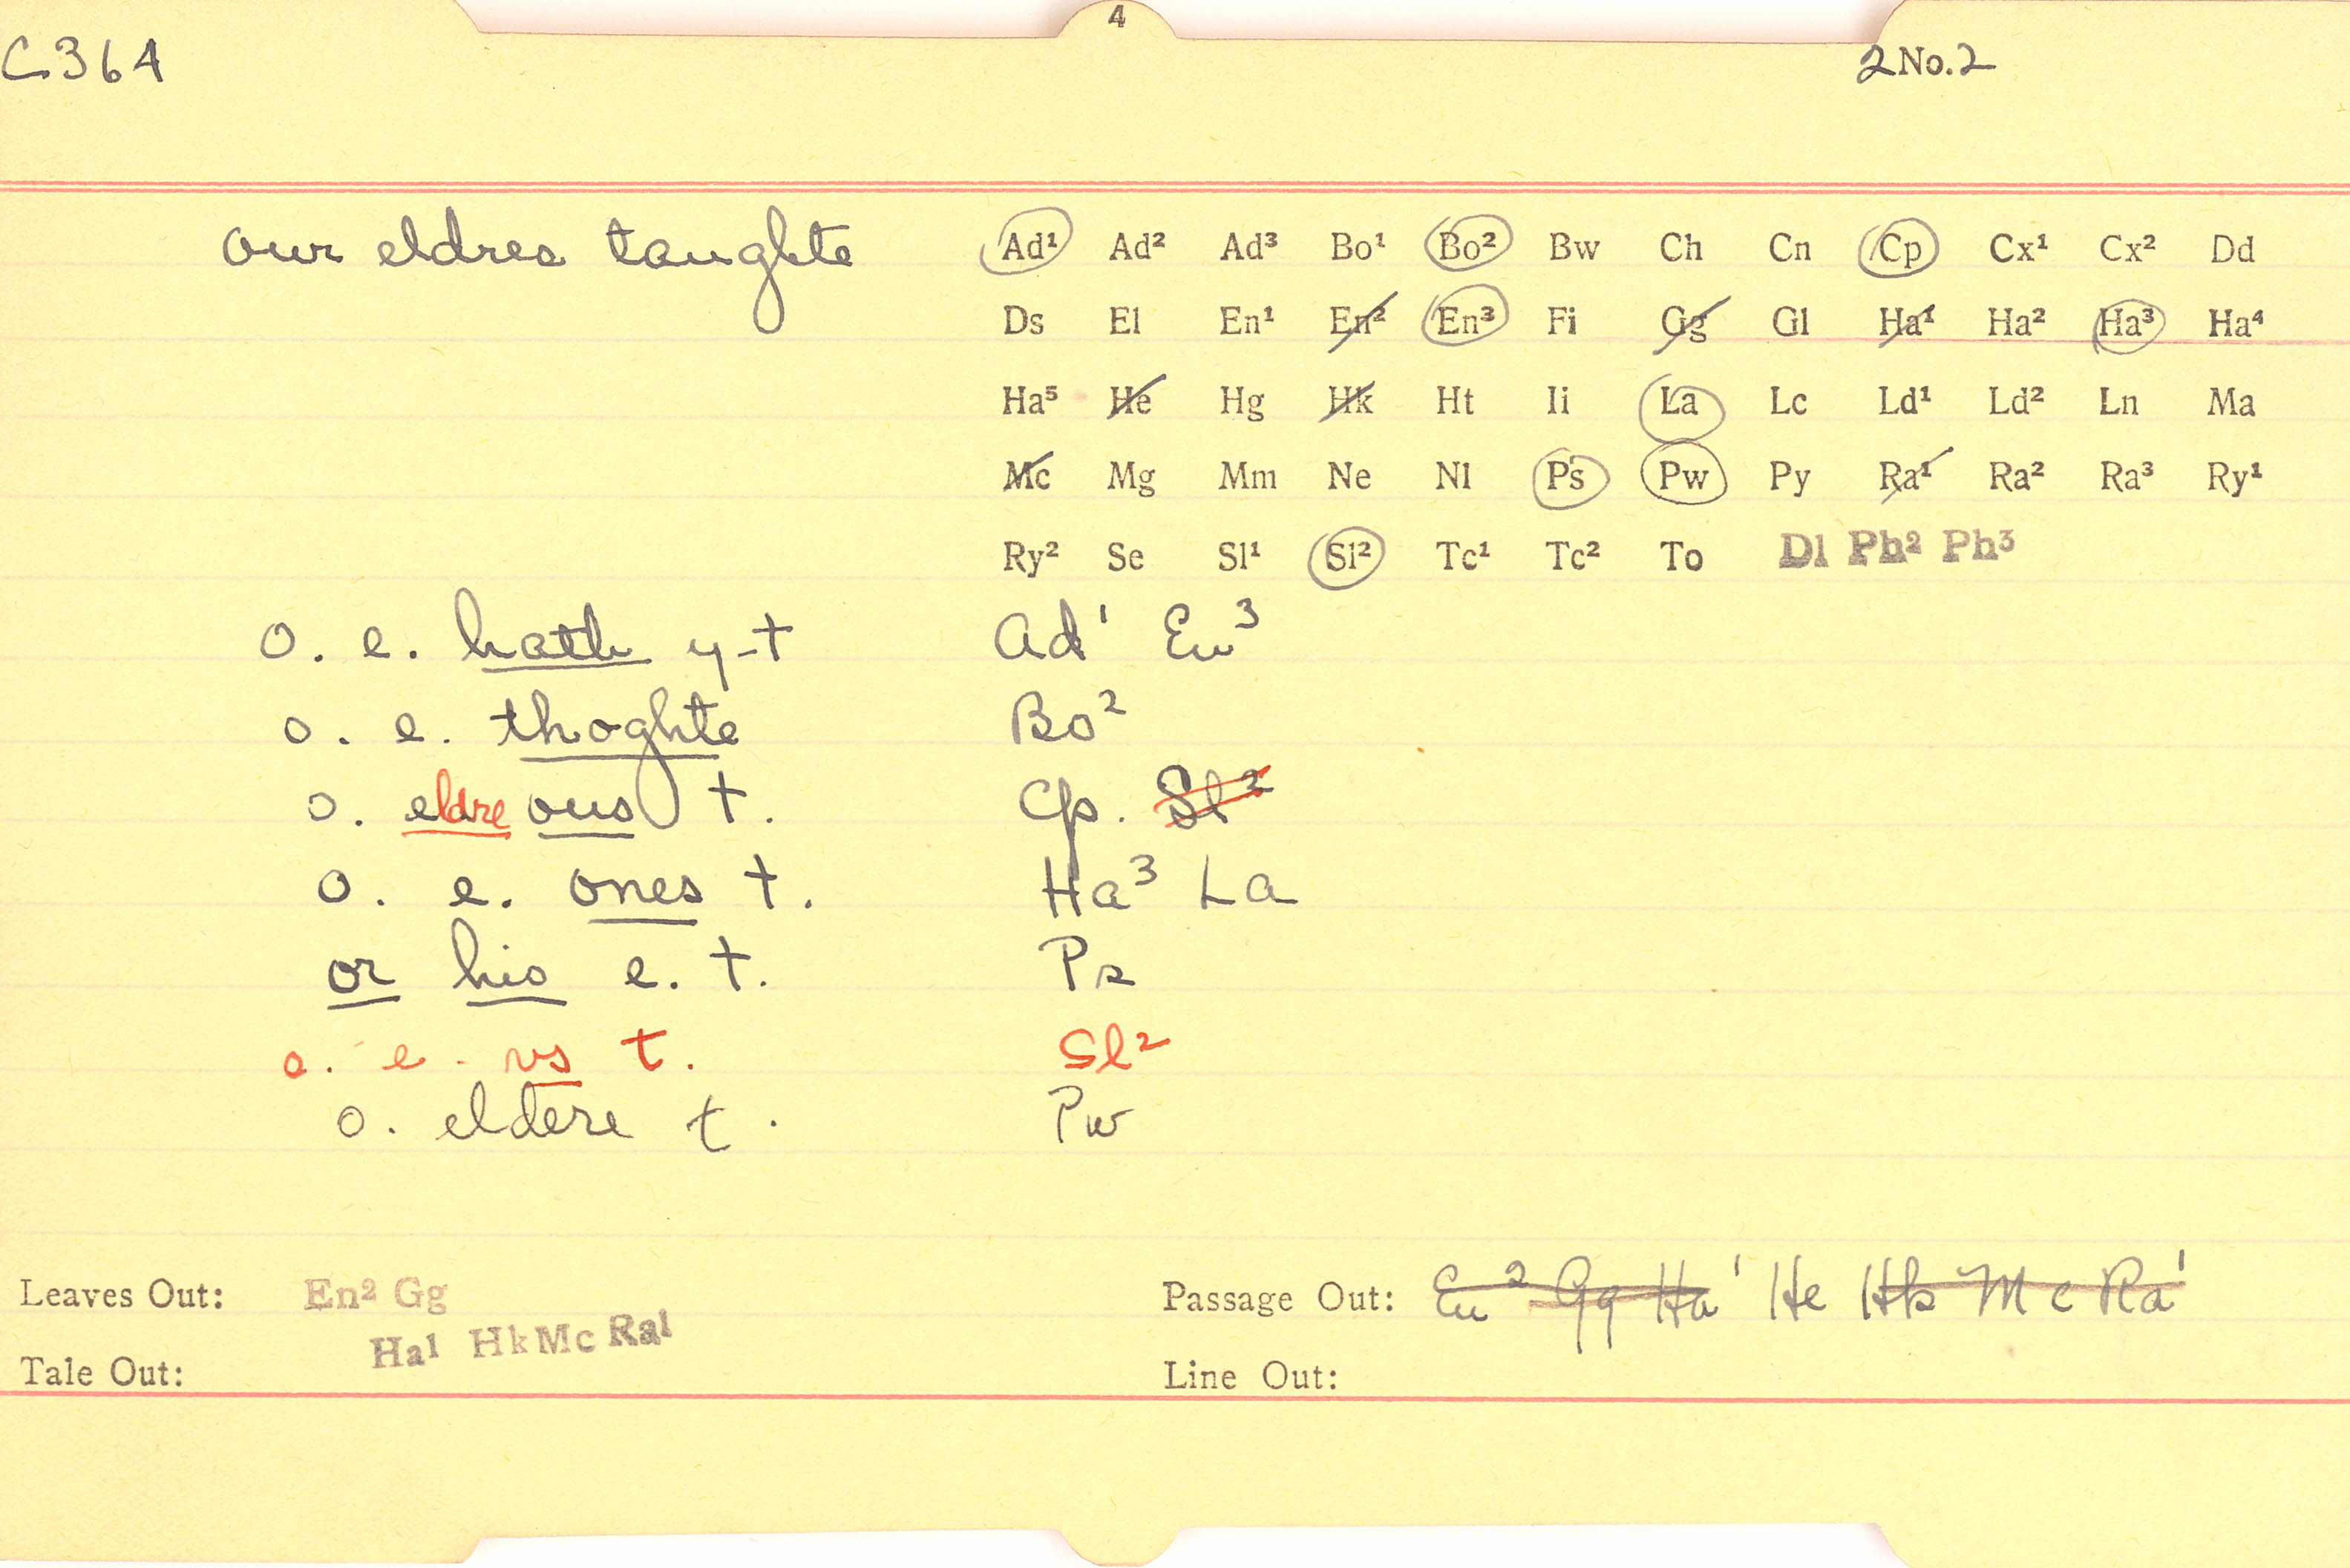 4
C364 2No.2
our eldres taughte Ad¹ Ad² Ad³ Bo¹ Bo² Bw Ch Cn Cp Cx¹ Cx² Dd
Ds El En¹ En² En³ Fi Gg Gl Ha¹ Ha² Ha³ Ha⁴
Ha⁵ He Hg Hk Ht Ii La Lc Ld¹ Ld² Ln Ma
Mc Mg Mm Ne Nl Ps Pw Py Ra¹ Ra² Ra³ Ry¹
Ry² Se Sl¹ Sl² Tc¹ Tc² To Dl Ph² Ph³
o. e. hath y-t Ad¹ En³
o. e. thoghte Bo²
o. eldre ous t. Cp. Sl²
o. e. ones t. Ha³ La
or his e. t. Ps
o. e. vs t. Sl²
o. eldere t. Pw
Leaves Out: En² Gg Passage Out: En² Gg Ha¹ He Hk Mc Ra¹
Ha¹ Hk Mc Ra¹
Tale Out: Line Out: